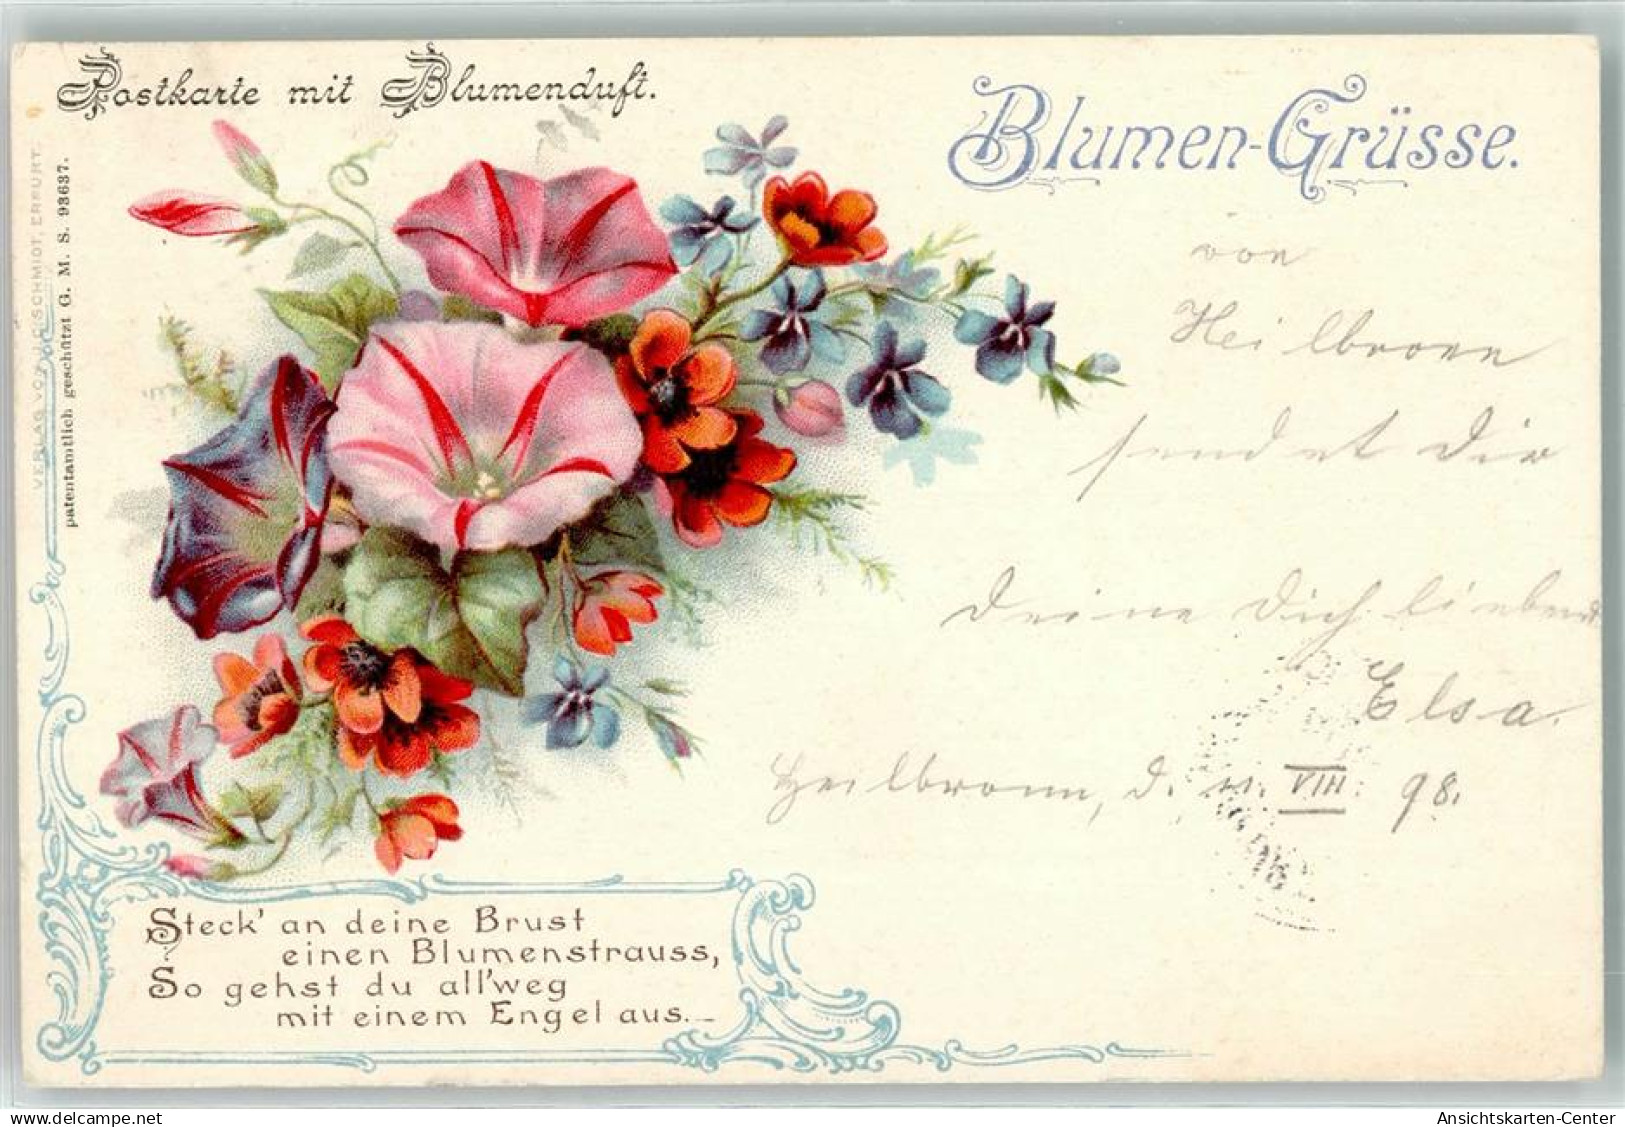 Postkarte mit Blumenduft.
Blumen-Grüsse.
VERLAG VON J. C. SCHMIDT, ERFURT.
patentamtlich geschützt G. M. S. 93637.
von
Heilbronn
sendet Dir
Deine Dich liebende
Elsa.
Heilbronn, d. 11. VIII. 98.
Steck' an deine Brust
einen Blumenstrauss,
So gehst du all'weg
mit einem Engel aus.—
www.delcampe.net
Ansichtskarten-Center